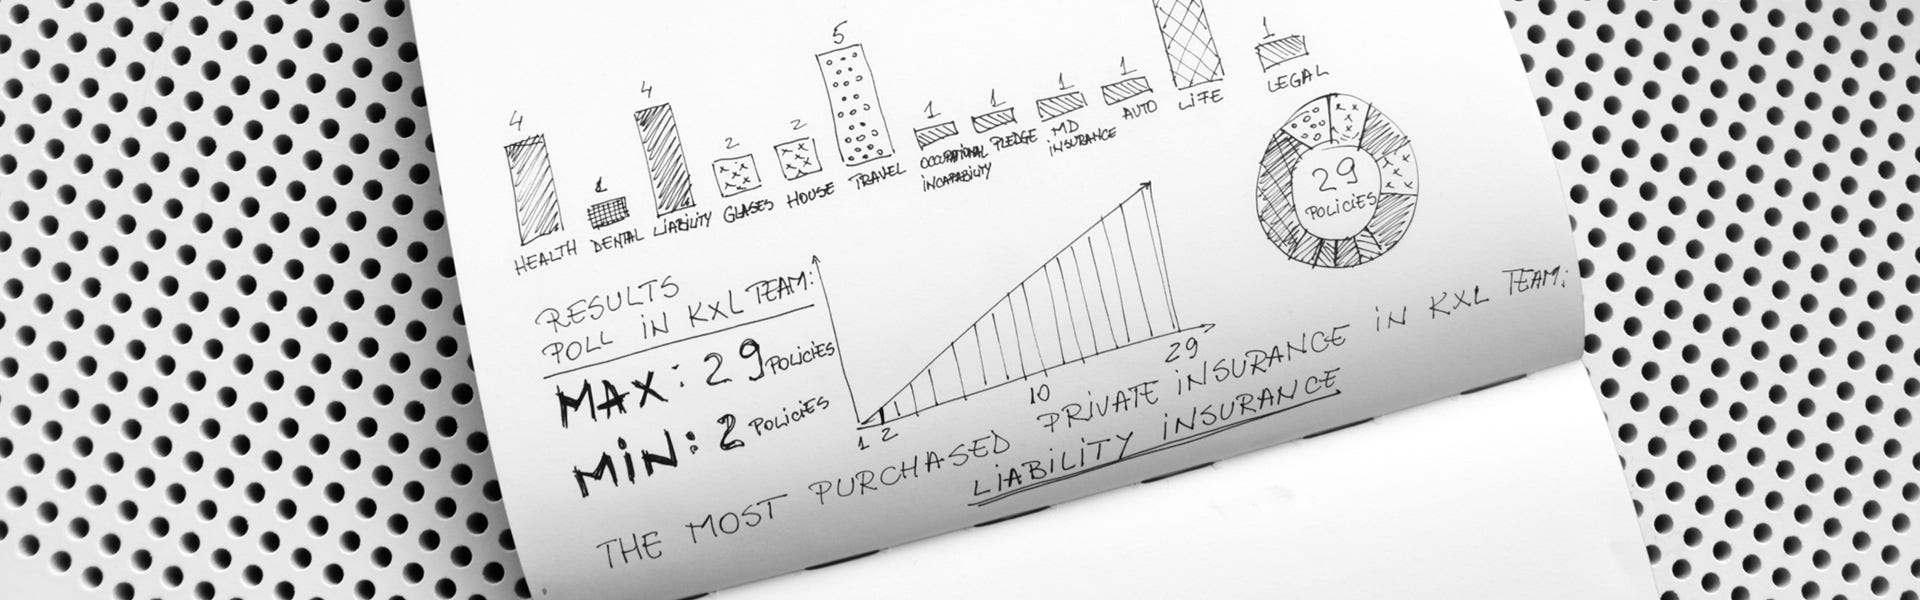 4
1
4
2
2
5
1
1
1
1
1
HEALTH
DENTAL
LIABILITY
GLASES
HOUSE
TRAVEL
OCCUPATIONAL
INCAPABILITY
PLEDGE
MD
INSURANCE
AUTO
LIFE
LEGAL
29
POLICIES
RESULTS
POLL IN KXL TEAM:
MAX: 29 POLICIES
MIN: 2 POLICIES
1 2 10 29
THE MOST PURCHASED PRIVATE INSURANCE IN KXL TEAM:
LIABILITY INSURANCE